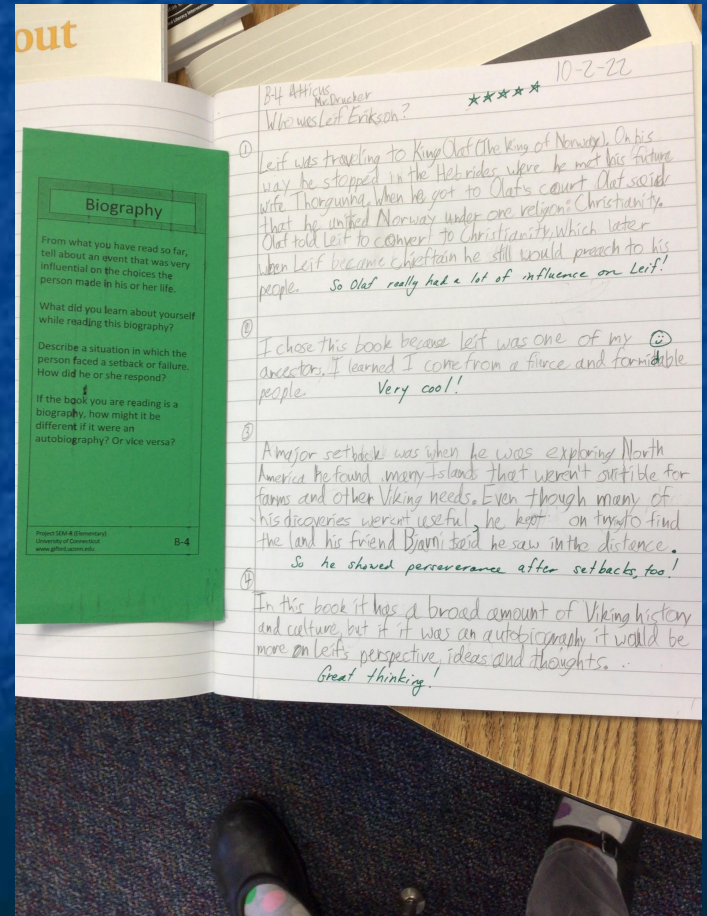 out
Biography
From what you have read so far,
tell about an event that was very
influential on the choices the
person made in his or her life.
What did you learn about yourself
while reading this biography?
Describe a situation in which the
person faced a setback or failure.
How did he or she respond?
If the book you are reading is a
biography, how might it be
different if it were an
autobiography? Or vice versa?
Project SEM-R (Elementary)
University of Connecticut
www.gifted.uconn.edu
B-4
10-2-22
B-4 Atticus
Mr.Drucker
Who was Leif Erikson?
①
Leif was traveling to King Olaf (The king of Norway). On his
way he stopped in the Hebrides, were he met his future
wife Thorgunna. When he got to Olaf's court Olaf said
that he united Norway under one religon: Christianity.
Olaf told Leif to convert to Christianity, Which later
when Leif became chieftain he still would preach to his
people. So Olaf really had a lot of influence on Leif!
②
I chose this book because leif was one of my
ancestors. I learned I come from a fierce and formidable
people. Very cool!
③
A major setback was when he was exploring North
America he found many Islands that weren't suitible for
farms and other Viking needs. Even though many of
his dicoveries weren't useful, he kept on trying to find
the land his friend Bjarni said he saw in the distence.
So he showed perseverance after setbacks, too!
④
In this book it has a broad amount of Viking history
and culture, but if it was an autobiography it would be
more on Leif's perspective, ideas and thoughts.
Great thinking!